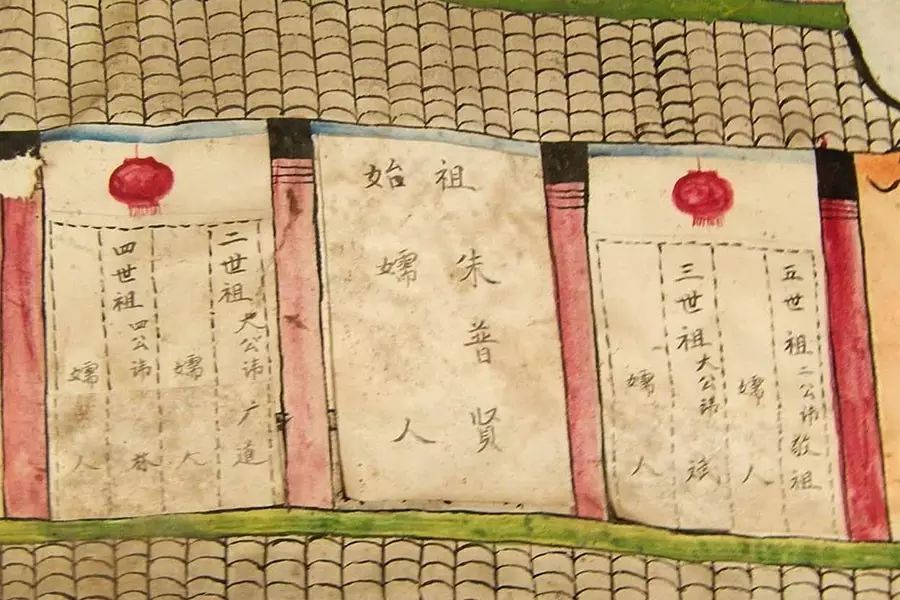 五世祖二公讳敬祖
孺人
三世祖大公讳斌
孺人
始祖
朱普贤
孺人
二世祖大公讳广道
孺人
四世祖四公讳
孺人